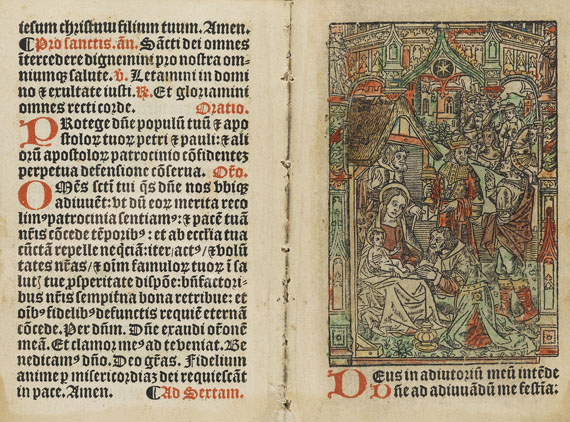 iesum christum filium tuum. Amen.
¶ Pro sanctis. an̄. Sācti dei omnes
ītercedere dignemini pro nostra om-
niumqꝫ salute. ꝟ. Letamini in domi
no ⁊ exultate iusti. ℟. Et gloriamini
omnes recti corde. Oratio.
PRotege dn̄e populū tuū ⁊ apo
stoloꝝ tuoꝝ petri ⁊ pauli: ⁊ ali
orū apostoloꝝ patrocinio cōfidenteꝫ
perpetua defensione cōserua. Oro.
OMēs sctī tui q̄s dn̄e nos vbiqꝫ
adiuuēt: vt dū eoꝝ merita reco
limꝰ patrocinia sentiamꝰ: ⁊ pacē tuā
nr̄is cōcede tēporibꝰ: ⁊ ab ecclīa tua
cūctā repelle neq̄ciā: iter/actꝰ/⁊ volū
tates nr̄as/⁊ oīm famuloꝝ tuoꝝ ī sa
lutꝭ tue ꝓsperitate dispōe: bn̄factori-
bus nr̄is sempitna bona retribue: et
oībꝰ fidelibꝰ defunctis requiē eternā
cōcede. Per dn̄m. Dn̄e exaudi orōnē
meā. Et clamor meꝰ ad te veniat. Be
nedicamꝰ dn̄o. Deo gr̄as. Fidelium
anime ꝑ misericordiaꝫ dei requiescāt
in pace. Amen. ¶ Ad Sextam.
DEus in adiutoriū meū intēde
Dn̄e ad adiuuādū me festīa: